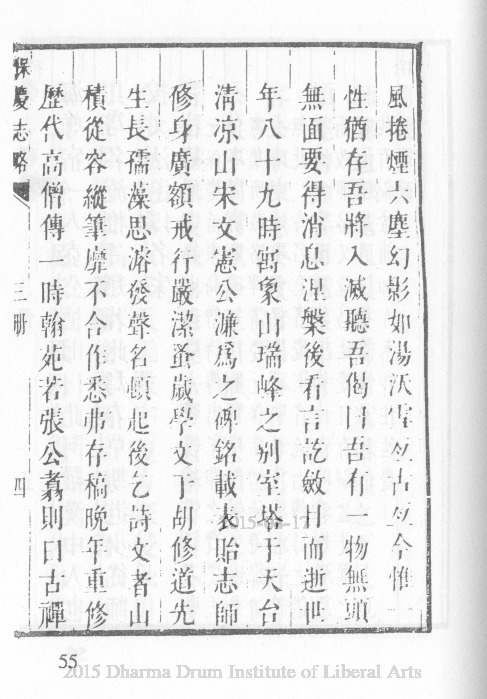 風捲煙六塵幻影如湯沃雪亙古亙今惟一
性猶存吾將入滅聽吾偈曰吾有一物無頭
無面要得消息涅槃後看言訖斂目而逝世
年八十九時寓象山瑞峰之别室塔于天台
清凉山宋文憲公濂爲之碑銘載表貽志師
修身廣額戒行嚴潔蚤歲學文于胡修道先
生長孺藻思濬發聲名頓起後乞詩文者山
積從容縱筆靡不合作悉弗存稿晚年重修
歷代高僧傳一時翰苑若張公翥則曰古禪
保慶志略 三册 四
55
2015 Dharma Drum Institute of Liberal Arts